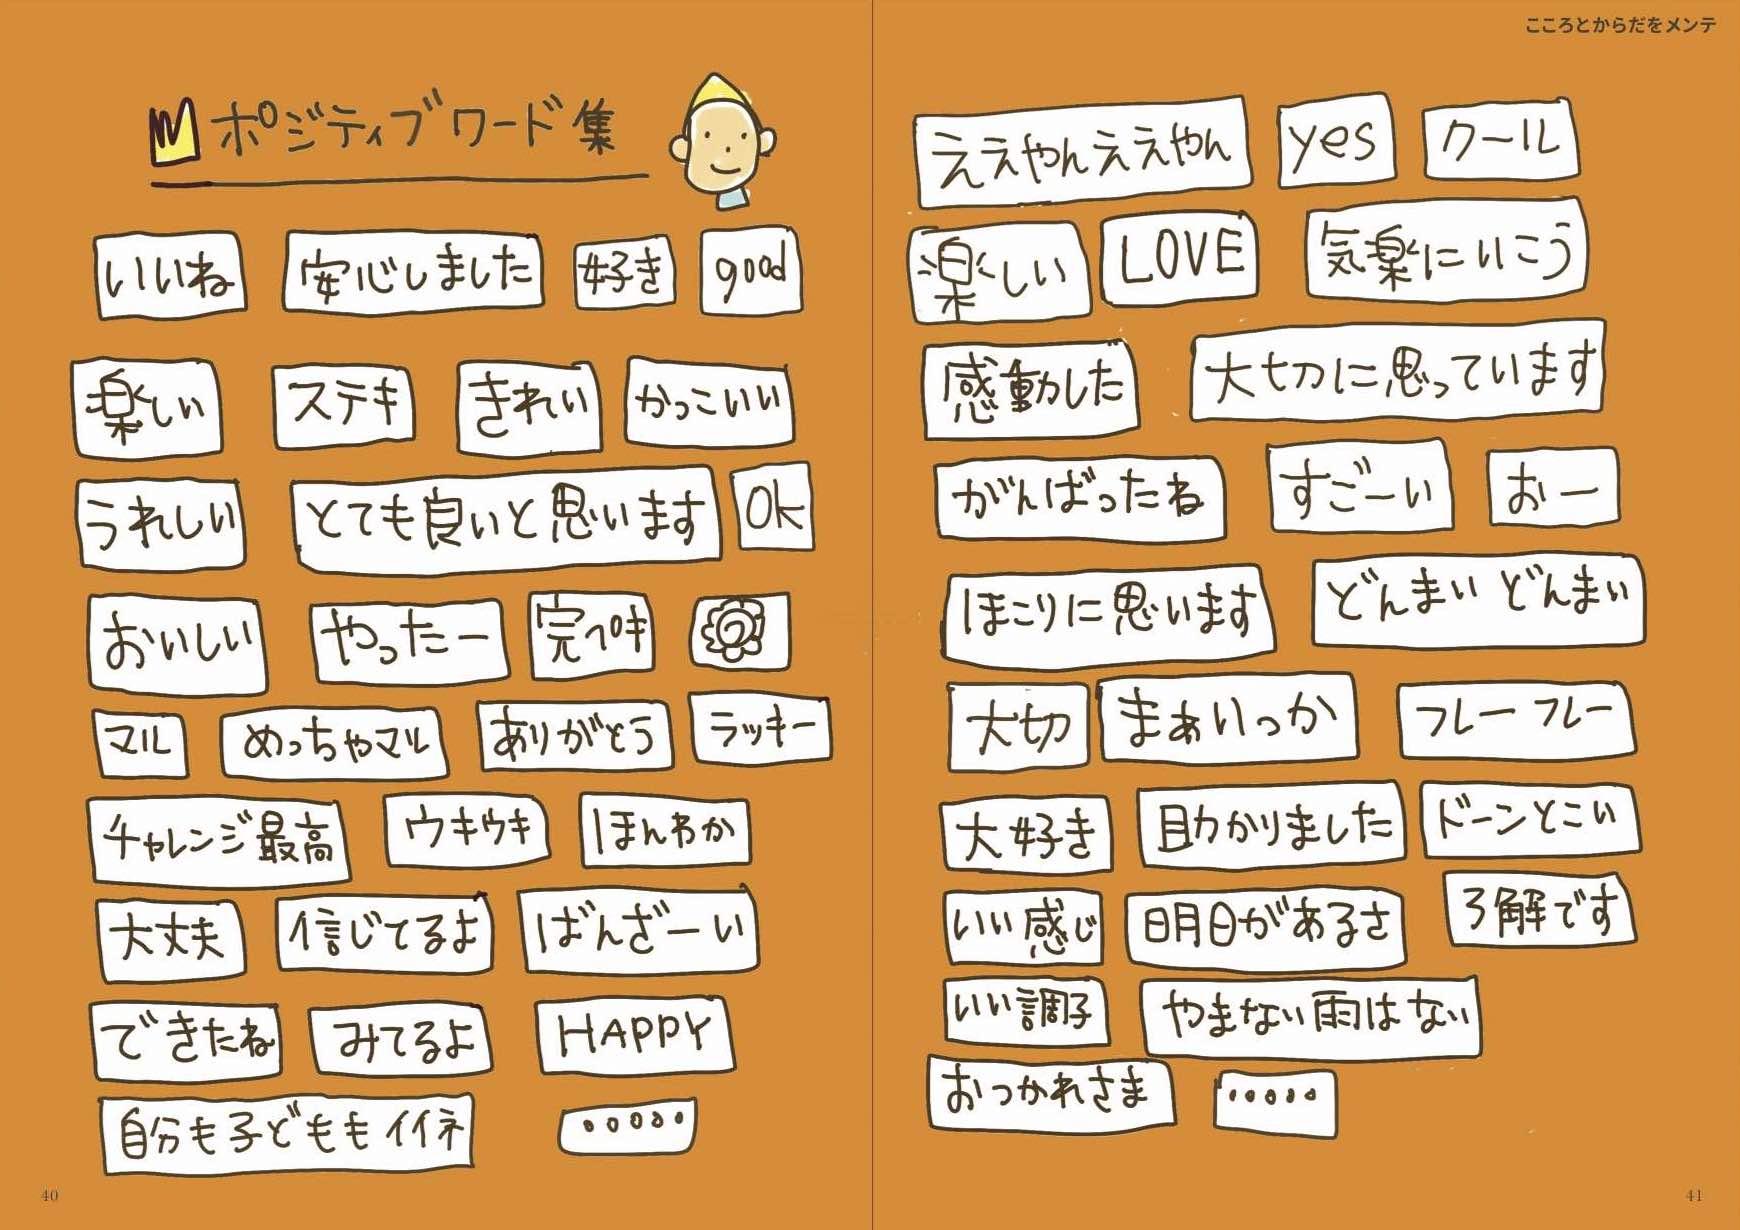 ポジティブワード集
いいね 安心しました 好き good
楽しい ステキ きれい かっこいい
うれしい とても良いと思います OK
おいしい やったー 完ペキ
マル めっちゃマル ありがとう ラッキー
チャレンジ最高 ウキウキ ほんわか
大丈夫 信じてるよ ばんざーい
できたね みてるよ HAPPY
自分も子どももイイネ .....
40
こころとからだをメンテ
ええやんええやん yes クール
楽しい LOVE 気楽にいこう
感動した 大切に思っています
がんばったね すごーい おー
ほこりに思います どんまい どんまい
大切 まぁいっか フレー フレー
大好き 助かりました ドーンとこい
いい感じ 明日があるさ 了解です
いい調子 やまない雨はない
おつかれさま .....
41